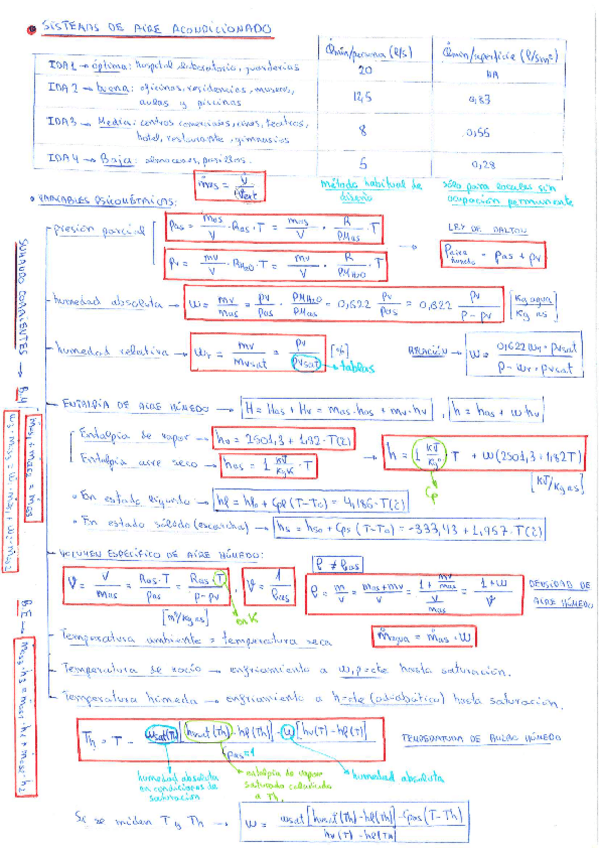 SISTEMAS DE AIRE ACONDICIONADO
Q̇mín/persona (l/s)
Q̇mín/superficie (l/s·m²)
IDA1 → óptima: hospital, laboratorio, guarderías
20
NA
IDA2 → buena: oficinas, residencias, museos, aulas y piscinas
12,5
0,83
IDA3 → Media: centros comerciales, cines, teatros, hotel, restaurante, gimnasios
8
0,55
IDA4 → Baja: almacenes, pasillos.
5
0,28
método habitual de diseño
sólo para locales sin ocupación permanente
VARIABLES PSICOMÉTRICAS:
presión parcial
Pas = mas/V · Ras · T = mas/V · R/PMas · T
Pv = mv/V · RH2O · T = mv/V · R/PMH2O · T
LEY DE DALTON
Paire húmedo = Pas + Pv
humedad absoluta → w = mv/mas = Pv/Pas · PMH2O/PMas = 0,622 Pv/Pas = 0,622 Pv/P-Pv [Kg agua/Kg as]
humedad relativa → wr = mv/mvsat = Pv/Pvsat [%]
tablas
RELACIÓN → w = 0,622 wr·Pvsat/P-wr·Pvsat
ENTALPÍA DE AIRE HÚMEDO → H = Has + Hv = mas·has + mv·hv , h = has + w·hv
Entalpía de vapor → hv = 2501,3 + 1,82·T(ºC)
Entalpía aire seco → has = 1 KJ/KgK · T
h = 1 KJ/KgK T + w(2501,3 + 1,82T)
[KJ/Kg as]
Cp
En estado líquido → hl = hl0 + Cpl (T-T0) = 4,186·T(ºC)
En estado sólido (escarcha) → hs = hs0 + Cps (T-T0) = -333,43 + 1,957·T(ºC)
VOLUMEN ESPECÍFICO DE AIRE HÚMEDO:
ρ ≠ ρas
V = V/mas = Ras·T/Pas = Ras·T/P-Pv , V = 1/ρas
[m³/Kg as]
en K
ρ = m/V = mas+mv/V = 1+mv/mas / V/mas = 1+w/V
DENSIDAD DE AIRE HÚMEDO
Temperatura ambiente = temperatura seca
ṁagua = ṁas · w
Temperatura de rocío → enfriamiento a w,p=cte hasta saturación.
Temperatura húmeda → enfriamiento a h=cte (adiabático) hasta saturación.
Th = T - wsat(Th)[hvsat(Th)-hl(Th)] - w[hv(T)-hl(T)] / Cpas=1
TEMPERATURA DE BULBO HÚMEDO
humedad absoluta en condiciones de saturación
entalpía de vapor saturado calculada a Th.
humedad absoluta
Si se miden T y Th → w = wsat[hvsat(Th)-hl(Th)]-Cpas(T-Th) / hv(T)-hl(Th)
SUMANDO CORRIENTES → B.M
mas1 + mas2 = mas3
w3·mas3 = w1·mas1 + w2·mas2
B.E → mas3·h3 = mas1·h1 + mas2·h2